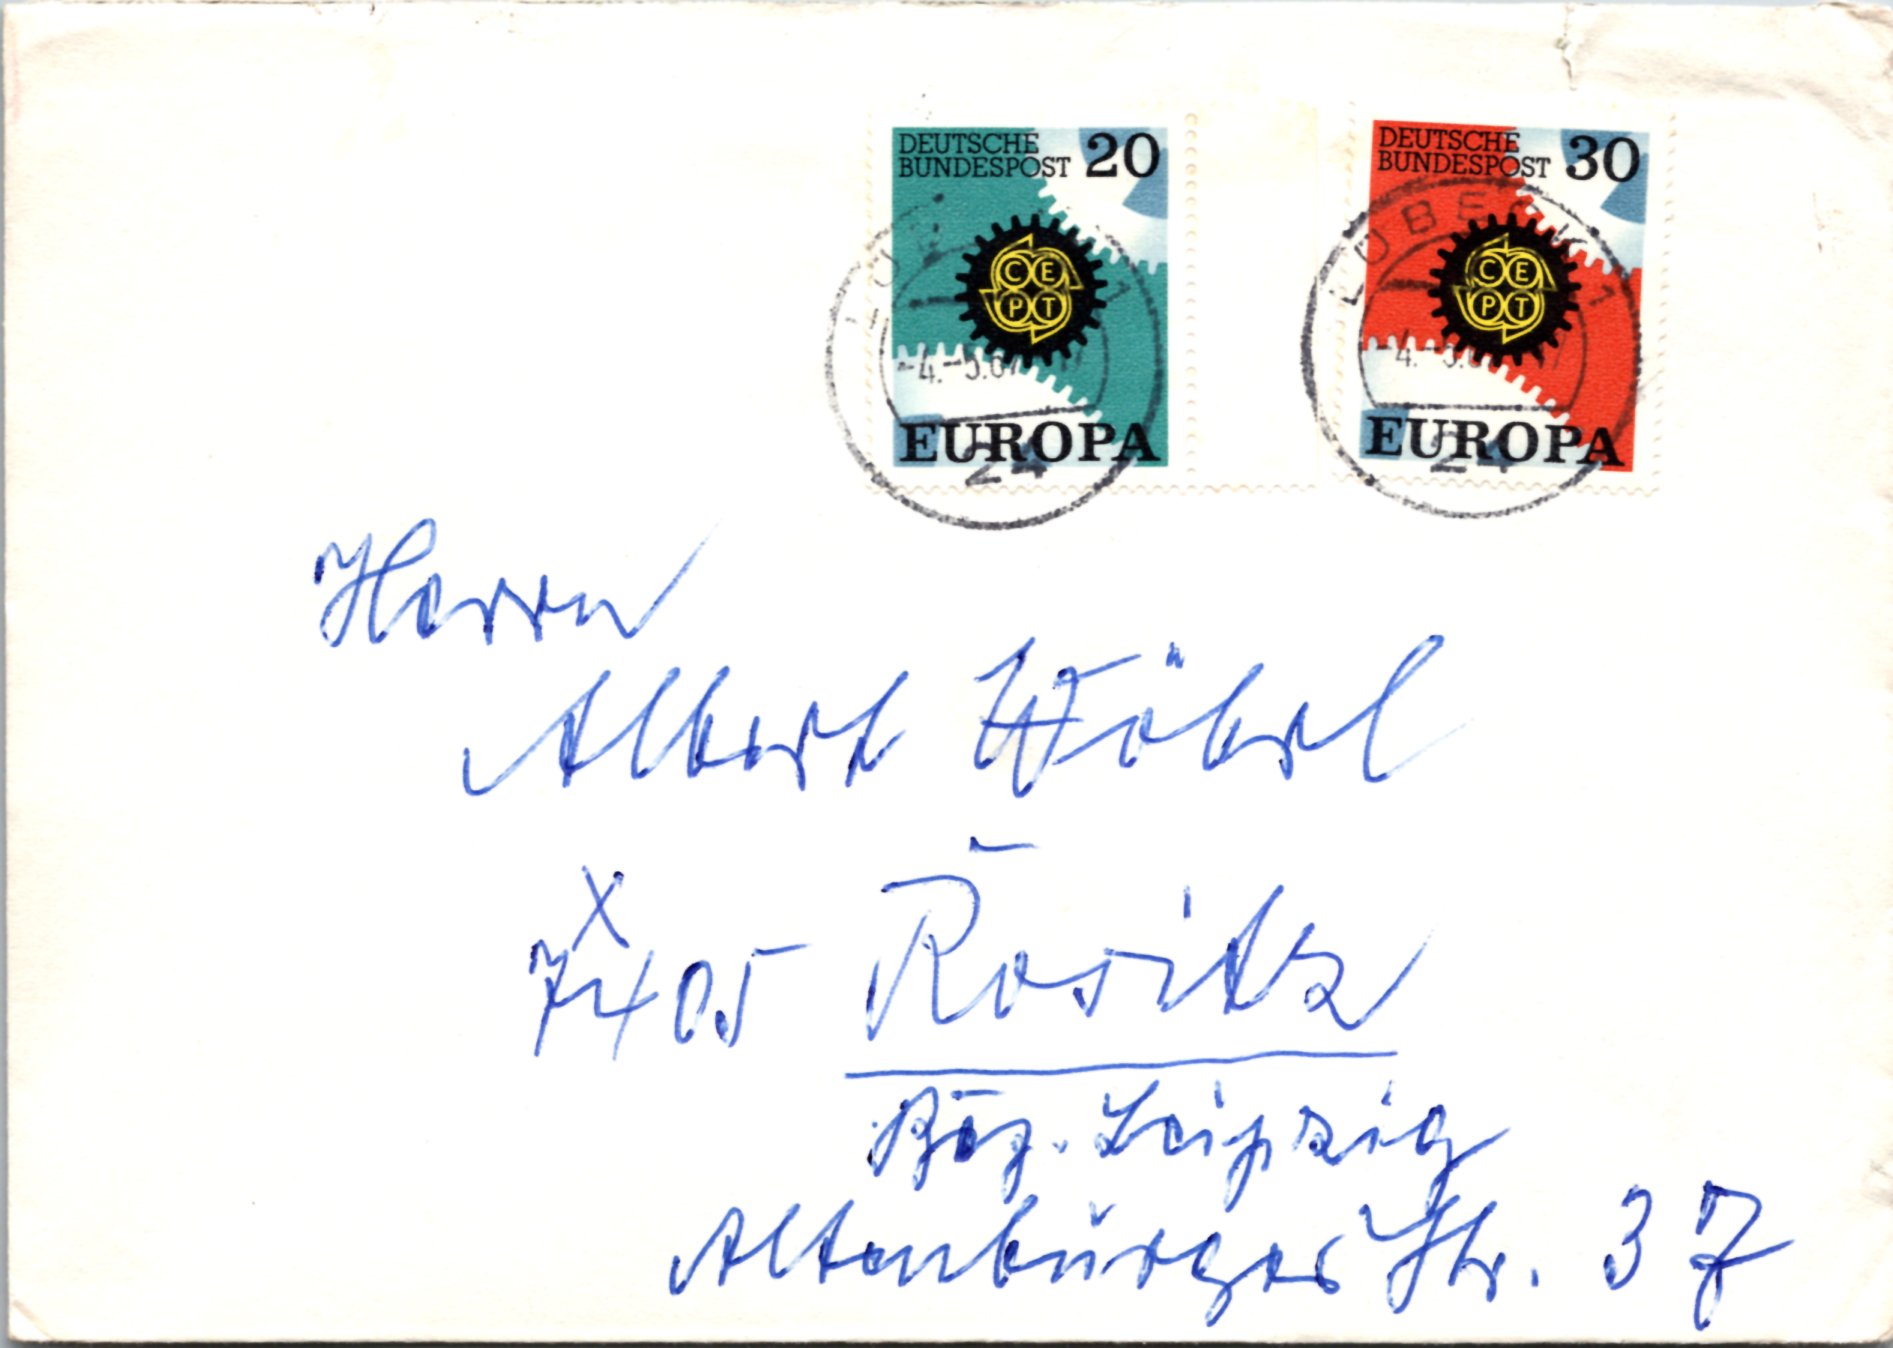 DEUTSCHE
BUNDESPOST 20
CEPT
EUROPA
DEUTSCHE
BUNDESPOST 30
CEPT
EUROPA
LÜBECK 1
-4.-5.67
24
LÜBECK 1
-4.-5.67
24
Herrn
Albert Wöbel
X
7405 Rositz
Bez. Leipzig
Altenburger Str. 37